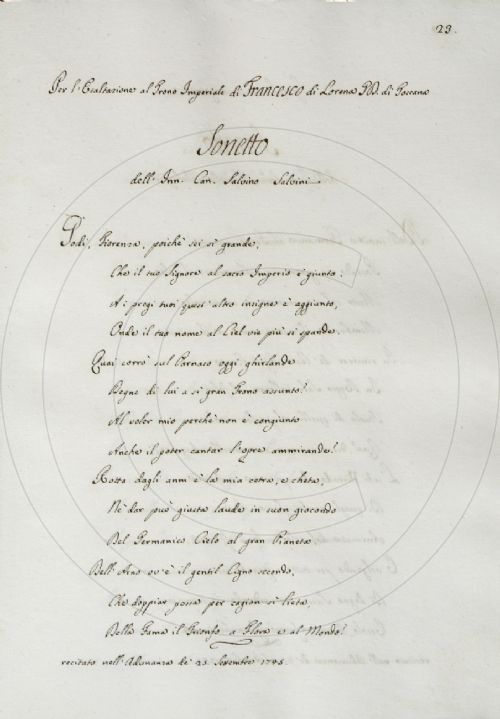 23.
Per l'Esaltazione al Trono Imperiale di Francesco di Lorena G.D. di Toscana
Sonetto
dell' Inn. Can. Salvino Salvini
Godi, Fiorenza, poichè sei sì grande,
Che il tuo Signore al sacro Imperio è giunto;
A i pregi tuoi quest' altro insigne è aggiunto,
Onde il tuo nome al Ciel vie più si spande.
Quai corrò sul Parnaso oggi ghirlande
Degne di lui a sì gran Trono assunto?
Al voler mio perchè non è congiunto
Anche il poter cantar l'opre ammirande?
Rotta dagli anni è la mia cetra, e cheta,
Nè dar può giusta laude in suon giocondo
Del Germanico Cielo al gran Pianeta
Dell' Arno ov' è il gentil Cigno secondo,
Che doppiar possa per cagion sì lieta
Della Fama il Trionfo a Flora e al Mondo?
recitato nell' Adunanza de' 23. Settembre 1745